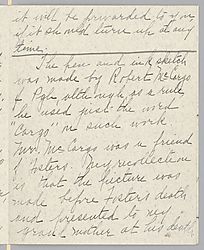 it will be forwarded to you
if it should turn up at any
time.
The pen and ink sketch
was made by Robert McCargo
of Pgh although, as a rule
he used just the word
"Cargo" on such work.
Mr. McCargo was a friend
of Fosters. My recollection
is that the picture was
made before Fosters death
and presented to my
grand mother at his death